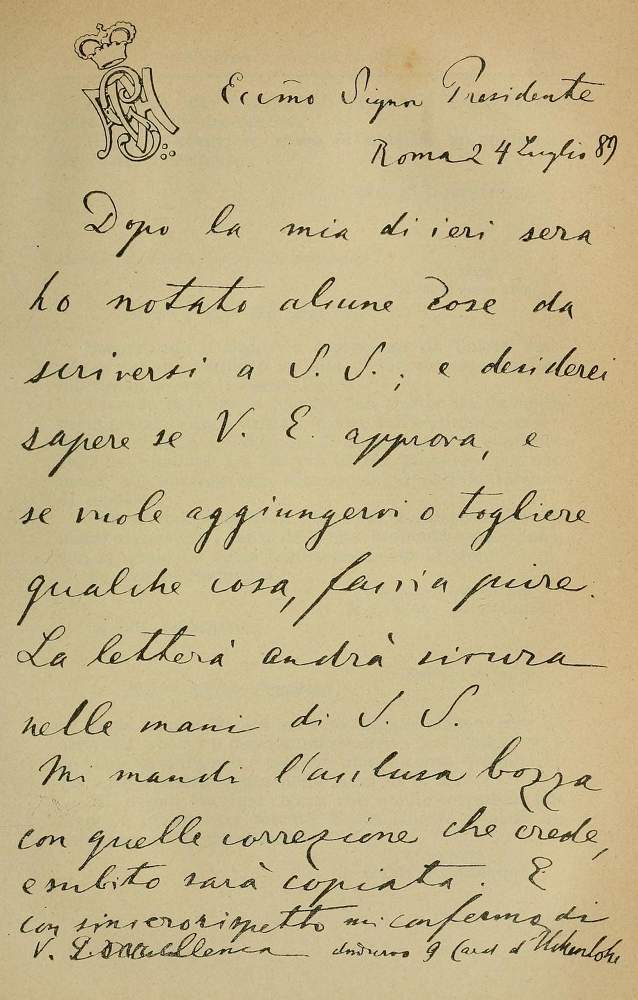 Eccmo Signor Presidente
Roma 24 Luglio 89
Dopo la mia di ieri sera
ho notato alcune cose da
scriversi a S. S.; e desiderei
sapere se V. E. approva, e
se vuole aggiungervi o togliere
qualche cosa, faccia pure.
La letterà andrà sicura
nelle mani di S. S.
Mi mandi l'acclusa bozza
con quelle correzione che crede,
e subito sarà copiata. E
con sincero rispetto mi confermo di
V. Eccellenza Card d'Hohenlohe